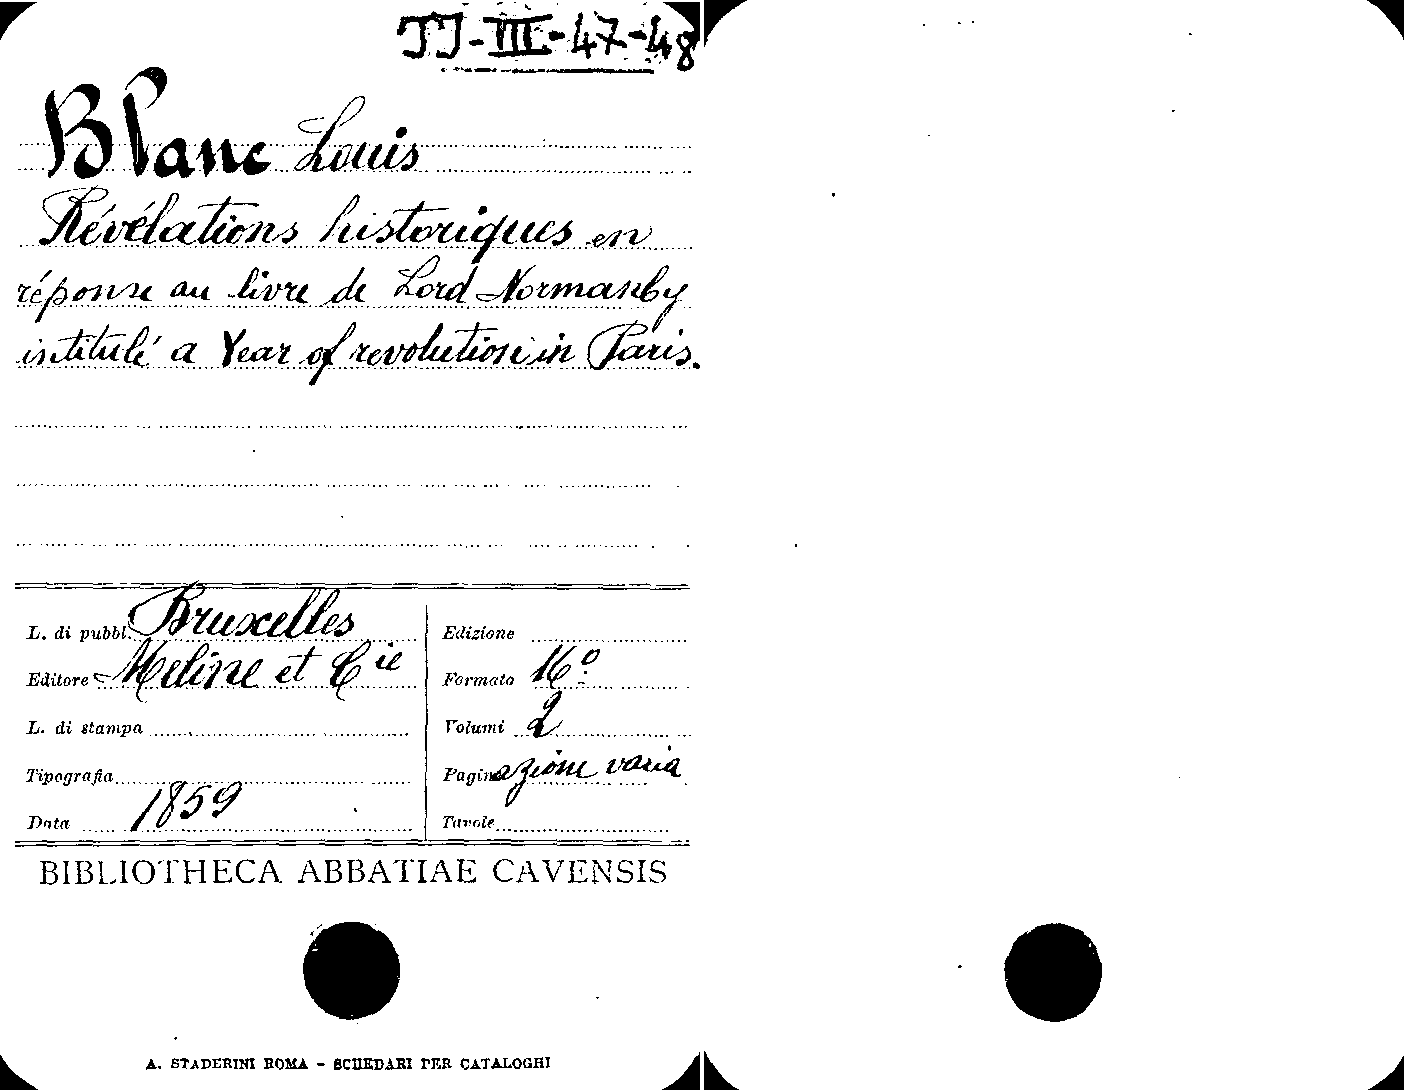 JJ-III-47-48
Blanc Louis
Révélations historiques en
réponse au livre de Lord Normanby
intitulé a Year of revolution in Paris.
L. di pubbl. Bruxelles
Editore Meline et Cie
L. di stampa
Tipografia
Data 1859
Edizione
Formato 16º
Volumi 2
Paginazione varia
Tavole
BIBLIOTHECA ABBATIAE CAVENSIS
A. STADERINI ROMA - SCHEDARI PER CATALOGHI